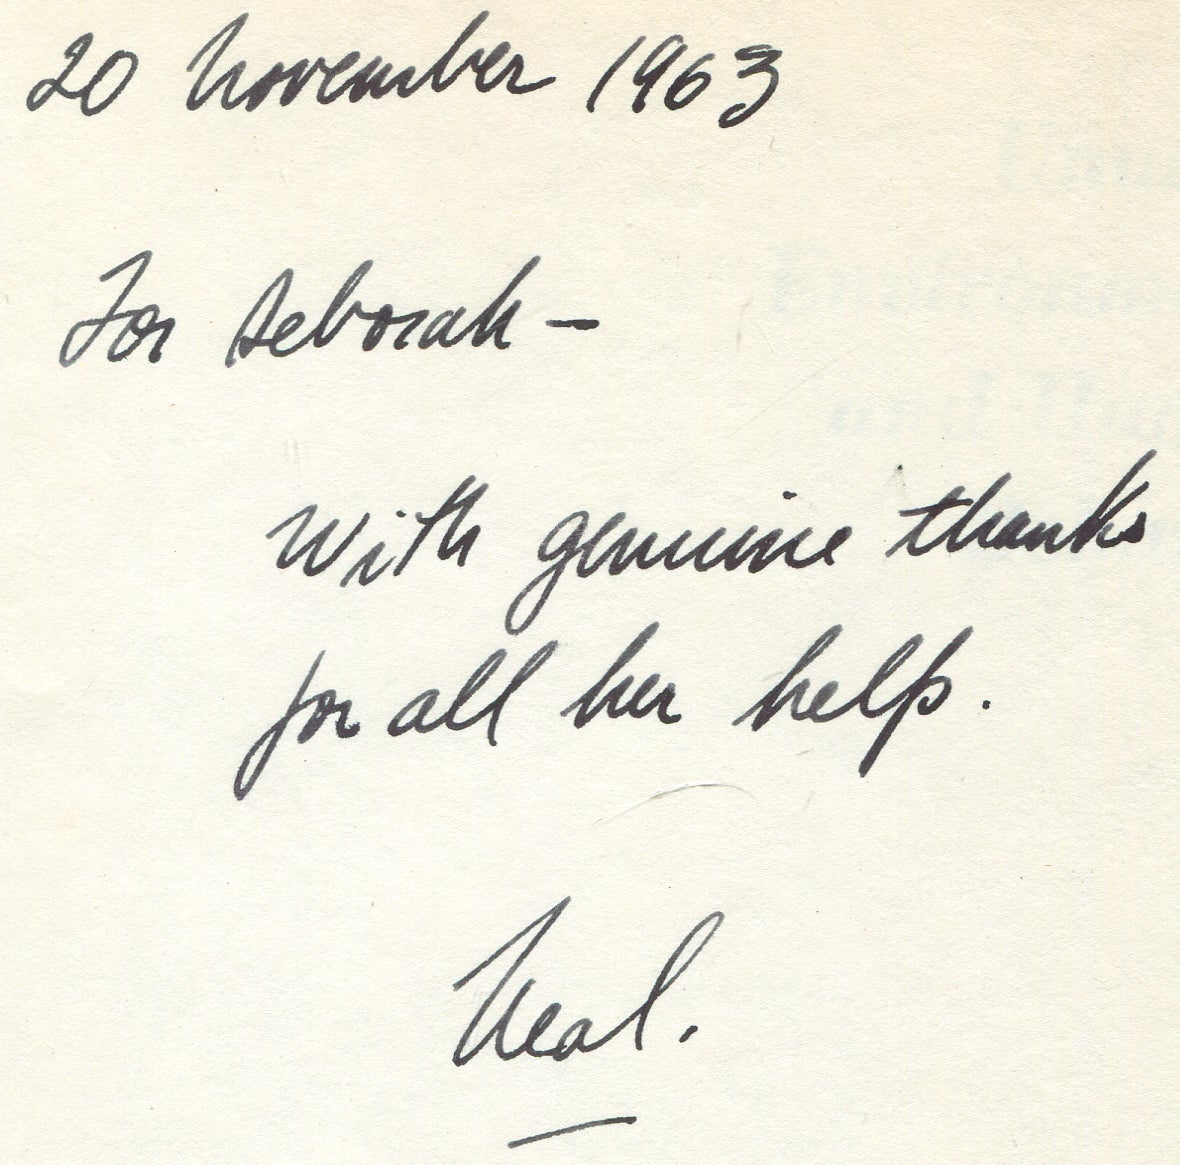 20 November 1963
For Deborah –
With genuine thanks
for all her help.
Neal.